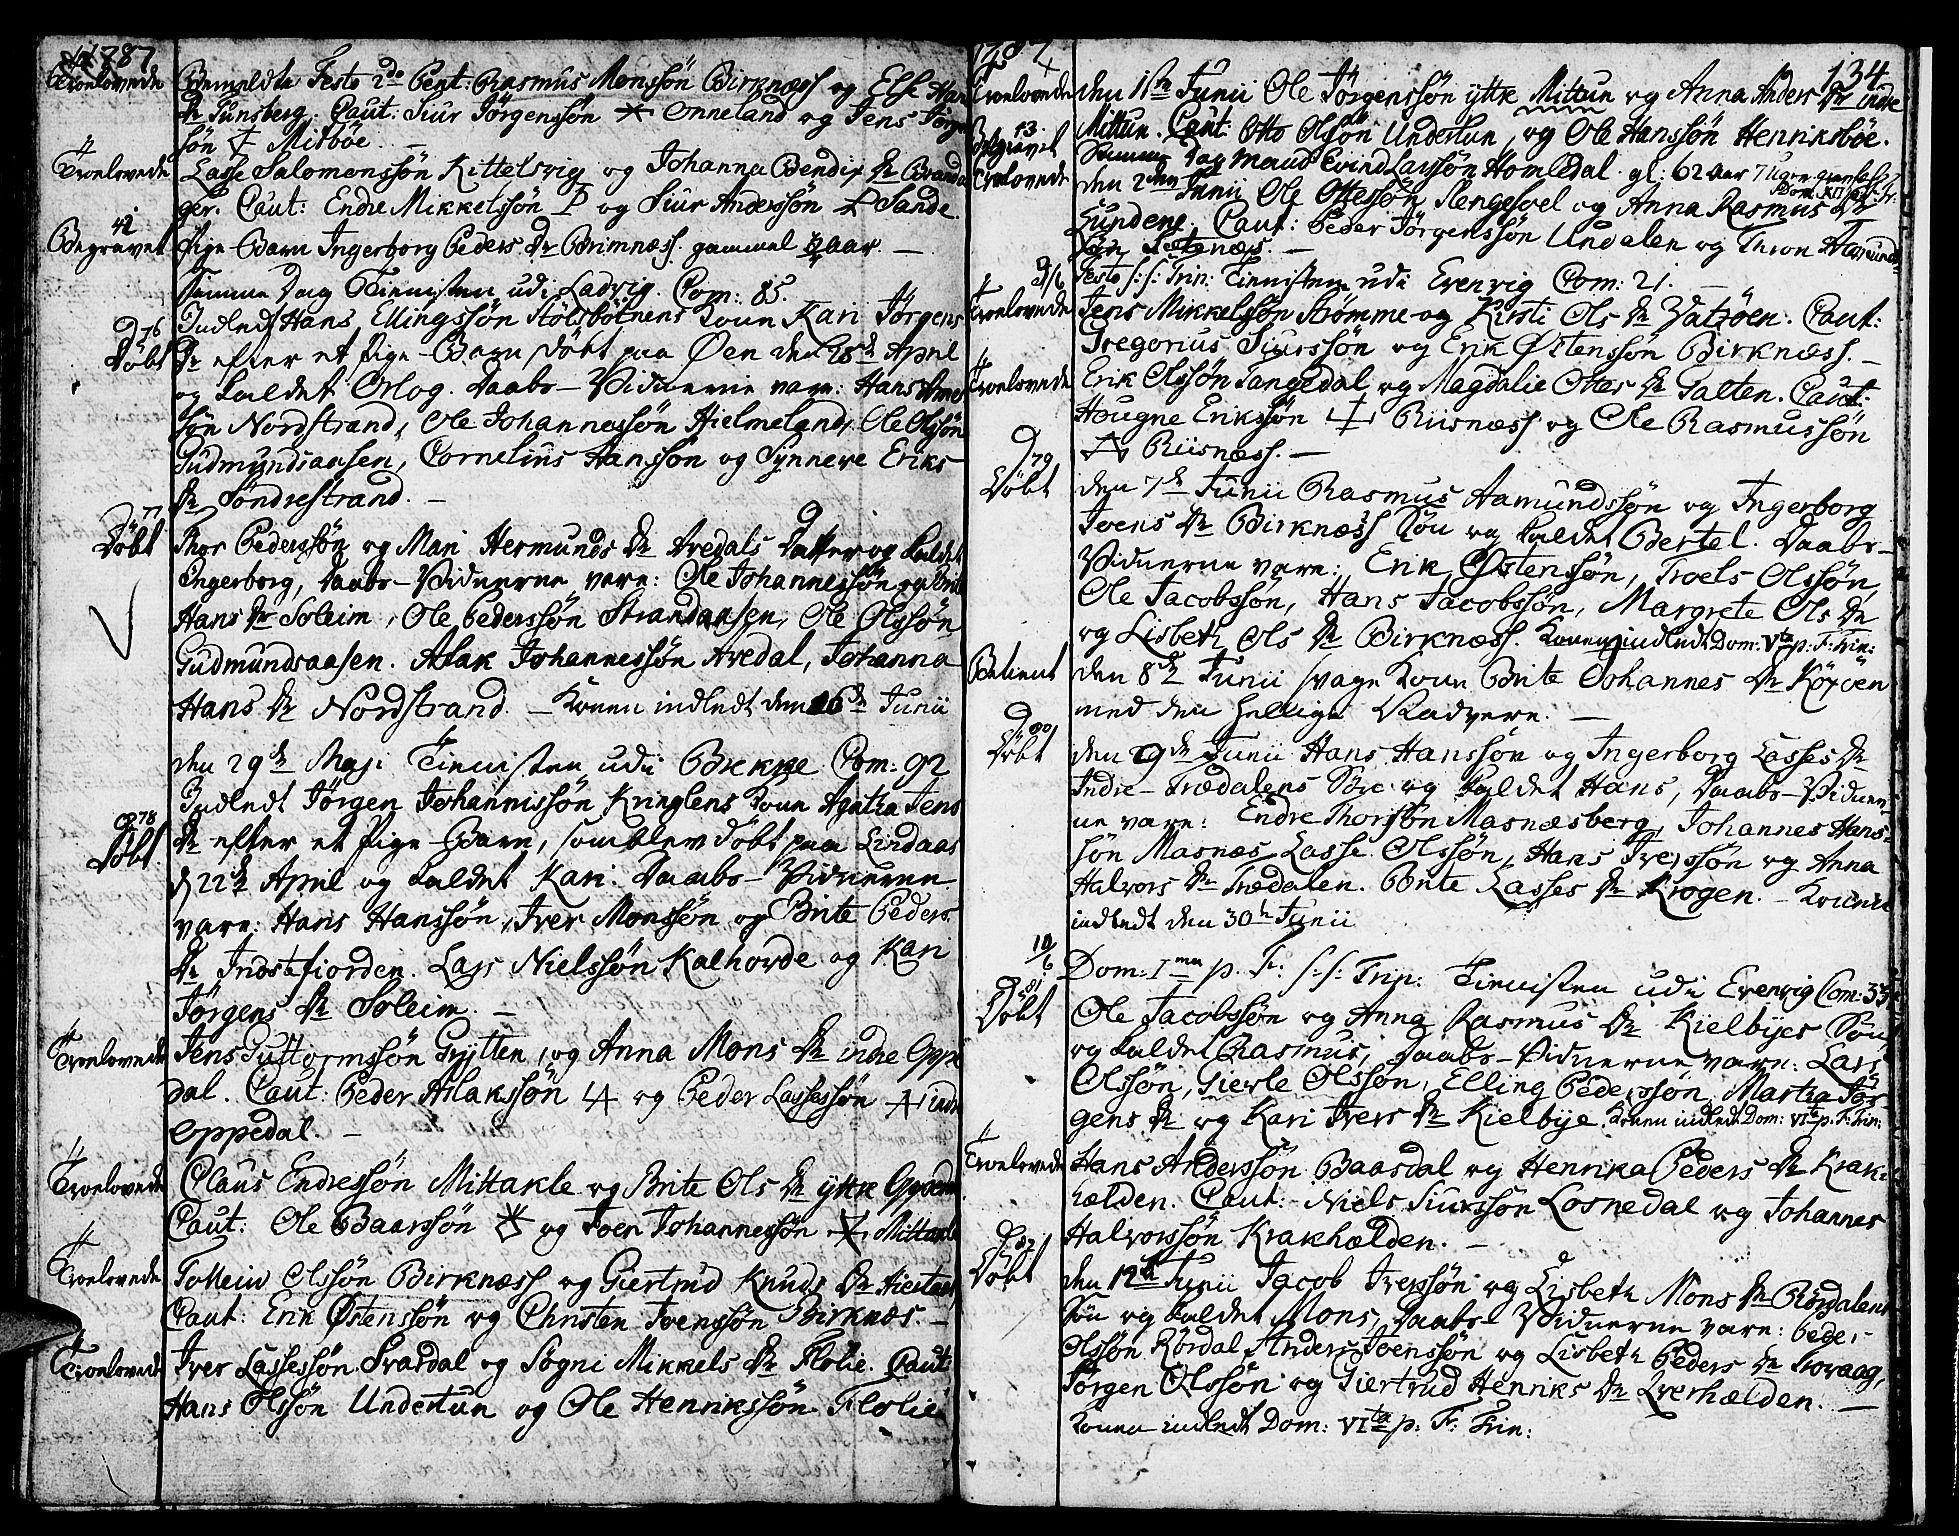 1787
Troelovede Bemeldte Festo 2do Pent: Rasmus Monssön Birknæss og Else Han
Dr Tunsberg. Caut: Siur Jörgenssön Onneland og Jens Jörgen
sön Misböe. —
Troelovede Lasse Salomonssön Kittelsvig og Johanna Bendix Dr Branda
ger. Caut: Endre Mikkelssön og Siur Anderssön Sande.
42
Begravet Pige-Barn Ingerborg Peders Dr Brimnæss. gammel aar. —
Samme Dag Tienisten udi Ladvig. Com: 85.
Indledt Hans Ellingssön Stölsbötnens Kone Kari Jörgens
76
Döbt Dr efter et Pige-Barn döbt paa Öen den 28de April
og kaldet Orlog. Daabs-Vidnerne vare: Hans Arne
sön Nordstrand, Ole Johannessön Hielmeland, Ole Olssön
Gudmundsaasen, Cornelius Hanssön og Synneve Eriks
Dr Söndrestrand. —
77
Döbt Thor Pederssön og Mari Hermunds Dr Avedals Datter og kaldet
Ingerborg, Daabs-Vidnerne vare: Ole Johannessön og Brite
Hans Dr Soleim, Ole Pederssön Strandaasen, Ole Olssön
Gudmundsaasen. Aslak Johannessön Avedal, Johanna
Hans Dr Nordstrand. — Konen indledt den 16de Junii
den 29de Maji Tienisten udi Brekke Com: 92
Indledt Jörgen Johannissön Kringlens Kone Agatha Jens
78
Döbt Dr efter et Pige-Barn, som blev döbt paa Lindaas
d 22de April og kaldet Kari. Daabs-Vidnerne
vare: Hans Hanssön, Iver Monssön og Brite Peders
Dr Indstefiorden. Lars Nielssön Kalhovde og Kari
Jörgens Dr Soleim. —
Troelovede Jens Guttormssön Grytten, og Anna Mons Dr indre Oppe
dal. Caut: Peder Atlakssön og Peder Lassessön indr
Oppedal. —
Troelovede Claus Endressön Mittakle og Brite Ols Dr ytre
Caut: Ole Baarssön og Joen Johannessön Mittakle
Troelovede Tollein Olssön Birknæss og Giertrud Knuds Dr
Caut: Erik Östenssön og Christen Joenssön Birknæs. —
Troelovede Iver Lassessön Svardal og Sögni Mikkels Dr Flolie. Caut:
Hans Olssön Undertun og Ole Henrikssön Flolie
1787 134
Troelovede den 1ste Junii Ole Jörgenssön ytre Mittun og Anna Anders Dr indre
Mittun. Caut: Otto Olssön Undertun, og Ole Hanssön Henriksböe.
43.
Begravet Samme Dag Mand Evind Larssön Homledal. gl: 62 aar 7 Uger
Troelovede den 2den Junii Ole Ottessön Slengesoel og Anna Rasmus Dr
Lundene. Caut: Peder Jörgenssön Undalen og Thron
3/6 Festo S: S: Trin: Tienisten udi Evenvig Com: 21. —
Troelovede Jens Mikkelssön Strömme og Kirsti Ols Dr Vatzöen. Caut:
Gregorius Siurssön og Erik Östenssön Birknæss. —
Troelovede Erik Olssön Tangedal og Magdalie Ottes Dr Galten. Caut:
Hougne Erikssön Riisnæss og Ole Rasmussön
Riisnæss. —
79
Döbt den 7de Junii Rasmus Aamundssön og Ingerborg
Joens Dr Birknæss Sön og kaldet Bertel. Daabs-
Vidnerne vare: Erik Östenssön, Troels Olssön,
Ole Jacobssön, Hans Jacobssön, Margrete Ols Dr
og Lisbeth Ols Dr Birknæss. Konen indledt Dom: VIta p: F: Trin:
Betient den 8de Junii svage Kone Brite Johannes Dr
med den hellige Nadvere. —
80
Döbt den 9de Junii Hans Hanssön og Ingerborg Lasses Dr
Indre-Trædalens Sön og kaldet Hans, Daabs-Vidner
ne vare: Endre Thorssön Masnæsberg, Johannes Hans
sön Masnæs Lasse Olssön, Hans Iverssön og Anna
Halvors Dr Trædalen. Brite Lasses Dr Krogen. — Konen
indledt den 30te Junii
10/6 Dom: Ima p. F: S: S: Trin: Tienisten udi Evenvig Com: 33
81
Döbt Ole Jacobssön og Anna Rasmus Dr Kielbyes Sön
og kaldet Rasmus, Daabs-Vidnerne vare: Lars
Olssön, Gierle Olssön, Elling Pederssön, Martha Jör-
gens Dr og Kari Ivers Dr Kielbye. Konen indledt Dom: VIta p: F: Trin:
Troelovede Hans Anderssön Baasdal og Henrika Peders Dr Krak-
hælden. Caut: Niels Siurssön Losnedal og Johannes
Halvorssön Krakhælden. —
82
Döbt den 12te Junii Jacob Iverssön og Lisbeth Mons Dr Rördalens
Sön og kaldet Mons, Daabs-Vidnerne vare: Peder
Olssön Rördal, Anders Joenssön og Lisbeth Peders Dr
Jörgen Olssön og Giertrud Henriks Dr Qverhælden. —
Konen indledt Dom: VIta p: F: Trin: